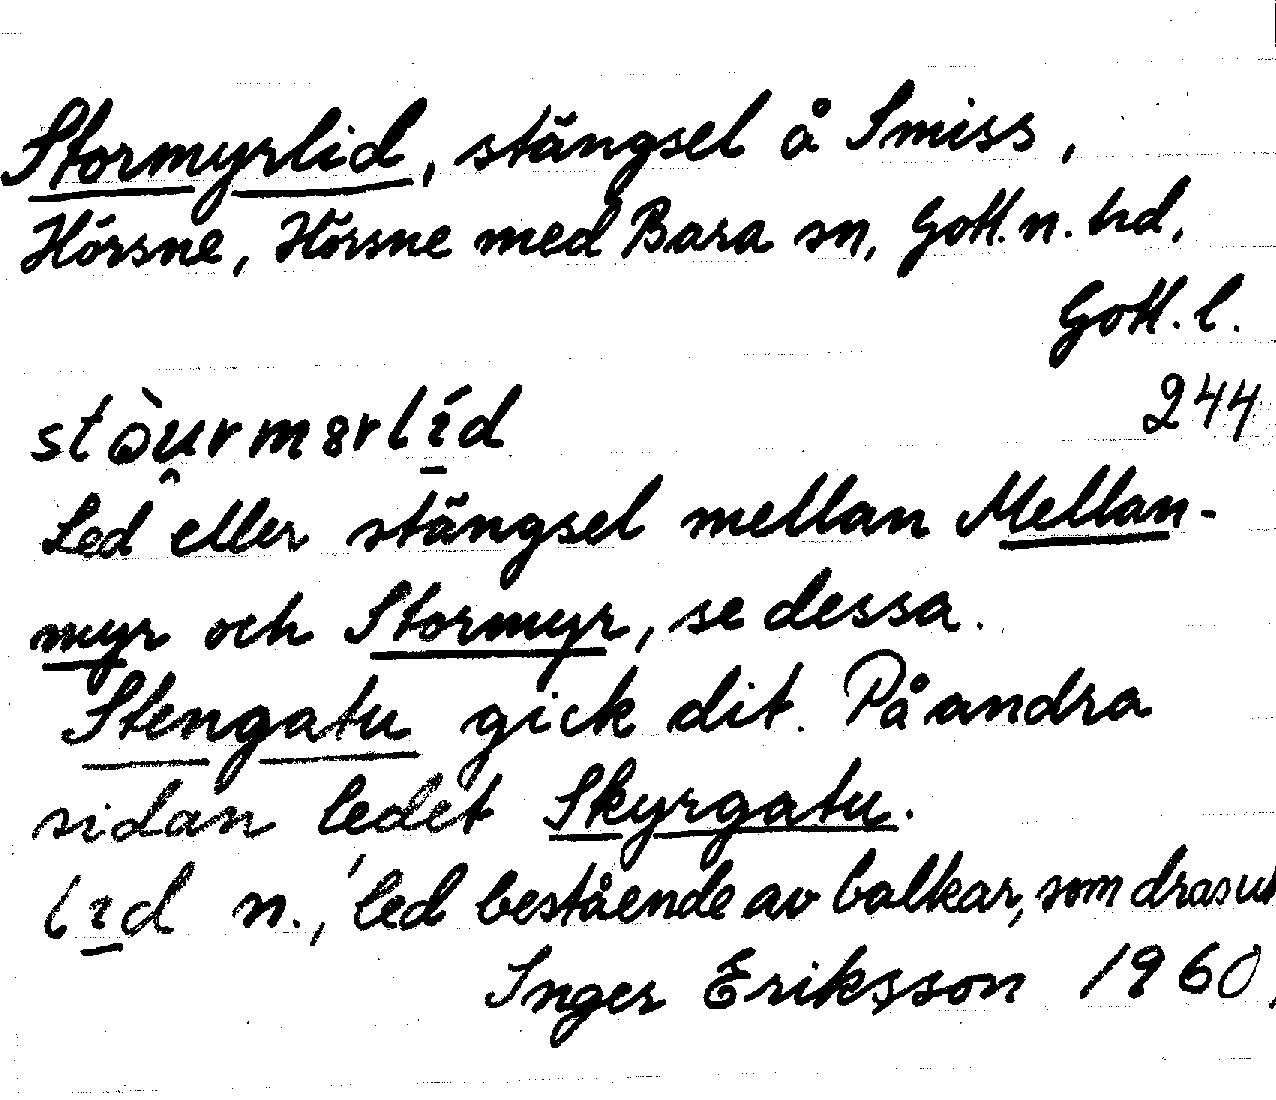 Stormyrlid, stängsel å Smiss,
Hörsne, Hörsne med Bara sn, Gotl. n. hd,
Gotl. l.
244
stòurmərlíd
Led eller stängsel mellan Mellan-
myr och Stormyr, se dessa.
Stengatu gick dit. På andra
sidan ledet Skyrgatu.
līd n., 'led bestående av balkar, som dras ut
Inger Eriksson 1960.